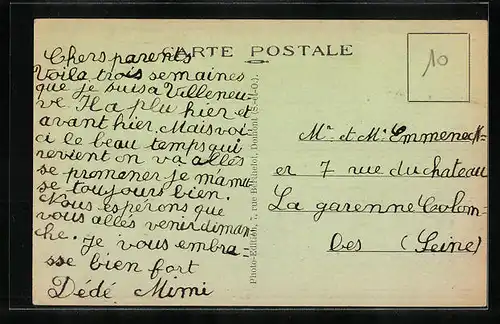 CARTE POSTALE
10
Chers parents
Voila trois semaines
que je suis a Villeneu-
ve. Il a plu hier et
avant hier. Mais voi-
ci le beau temps qui
revient on va allés
se promener je m'amu
se toujours bien.
Nous espérons que
vous allés venir diman
che. je vous embra
sse bien fort
Dédé Mimi
Photo-Edition, 7, rue Berthelot, Domont (S.-et-O.).
Mr et Me Emmeneck-
er 7 rue du chateau
La garenne Colom-
bes (Seine)